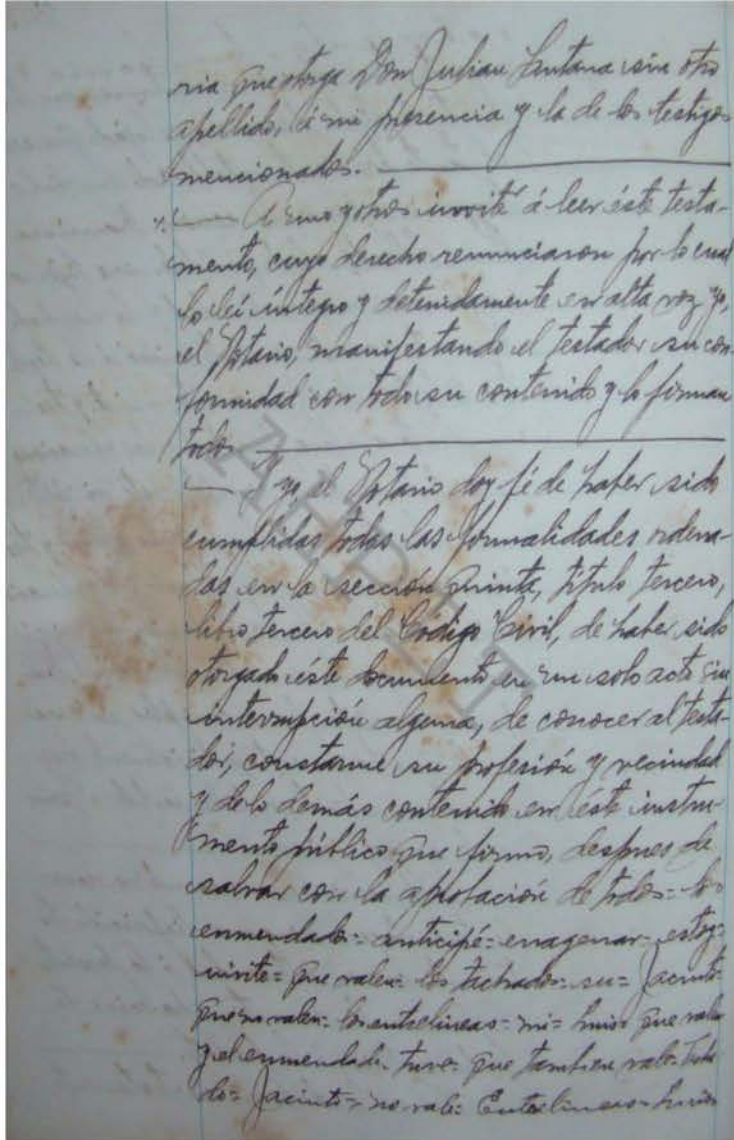 ria que otorga Don Julian Santana sin otro
apellido, á mi presencia y la de los testigos
mencionados.
A uno y otros invité á leer éste testa-
mento, cuyo derecho renunciaron por lo cual
lo leí íntegro y detenidamente en alta voz yo,
el Notario, manifestando el testador su con-
formidad con todo su contenido y lo firman
todos
Y yo, el Notario doy fé de haber sido
cumplidas todas las formalidades ordena-
das en la sección quinta, título tercero,
libro tercero del Código Civil, de haber sido
otorgado éste documento en un solo acto sin
interrupción alguna, de conocer al testa-
dor, constarme su profesión y vecindad
y de lo demás contenido en éste instru-
mento público que firmo, despues de
salvar con la aprobación de todos= los
enmendados= anticipé= enagenar= estoy=
invite= que valen= los tachados= su= Jacinto=
que no valen= los entrelineas= mi= que valen
y el enmendado= tuve= que tambien vale= Tacha
do= Jacinto= no vale= Entrelineas=
AHPLT